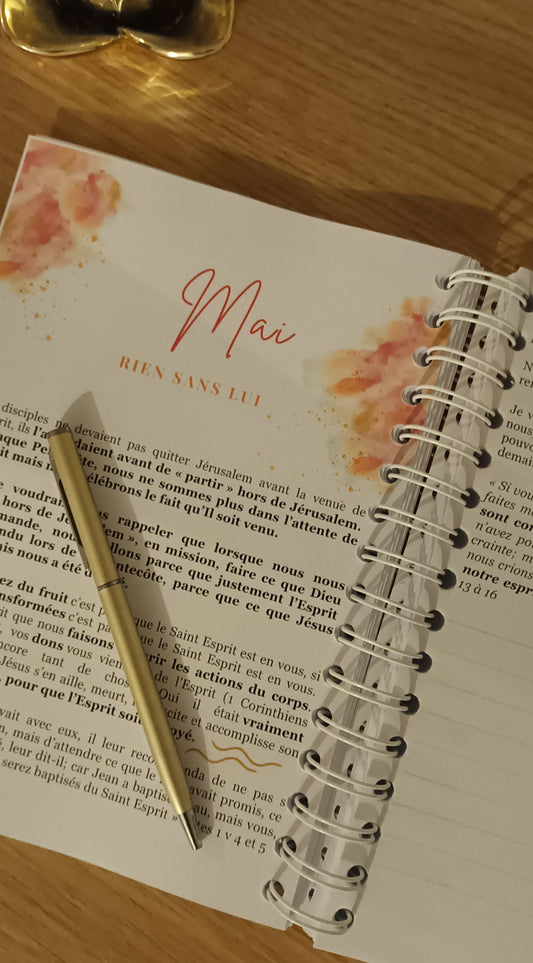 Mai
RIEN SANS LUI
disciples ne devaient pas quitter Jérusalem avant la venue de
rit, ils l'a daient avant de « partir » hors de Jérusalem.
aque Pe te, nous ne sommes plus dans l'attente de
it mais n élébrons le fait qu'Il soit venu.
voudra s rappeler que lorsque nous nous
hors de Je em », en mission, faire ce que Dieu
mande, nou llons parce que justement l'Esprit
ndu lors de ntecôte, parce que ce que Jésus
is nous a été d
ez du fruit c'est p que le Saint Esprit est en vous, si
nsformées c'est pa que le Saint Esprit est en vous.
rit que nous faisons rir les actions du corps.
, vos dons vous vien de l'Esprit (1 Corinthiens
ncore tant de chos Oui il était vraiment
Jésus s'en aille, meurt, cite et accomplisse son
, pour que l'Esprit soi oyé.
vait avec eux, il leur reco nda de ne pas s
n, mais d'attendre ce que le avait promis, ce
, leur dit-il; car Jean a baptis au, mais vous,
serez baptisés du Saint Esprit » tes 1 v 4 et 5
N
re
Je v
nous
pouve
demai
« Si vou
faites m
sont con
n'avez po
crainte; m
nous crions
notre espr
13 à 16